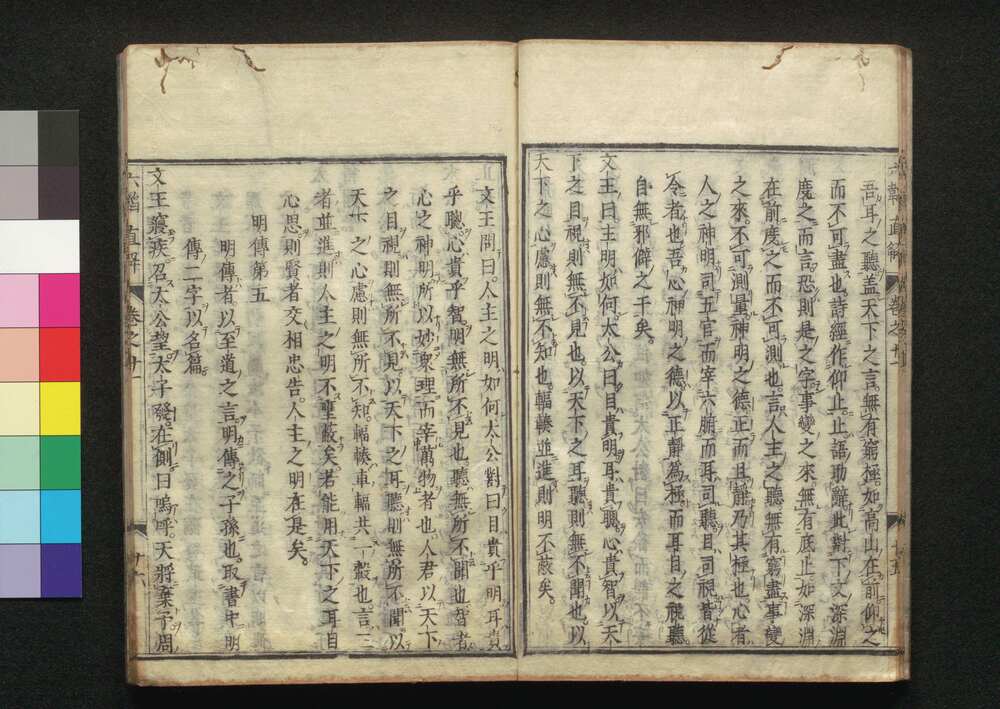 吾耳之聽蓋天下之言無有窮極如高山在前仰之
而不可盡也詩經作仰止止語助辭此對下文深淵
度之而言恐則是之字事變之來無有底止如深淵
在前度之而不可測也言人主之聽無有窮盡事變
之來不可測量神明之德正而且靜乃其極也心者
人之神明司五官而宰六腑而耳司聽目司視皆從
令者也吾心神明之德以正靜為極而耳目之視聽
自無邪僻之干矣
文王曰主明如何太公曰目貴明耳貴聰心貴智以天
下之目視則無不見也以天下之耳聽則無不聞也以
天下之心慮則無不知也輻輳並進則明不蔽矣
文王問曰人主之明如何太公對曰目貴乎明耳貴
乎聰心貴乎智明無所不見也聽無所不聞也智者
心之神明所以妙衆理而宰萬物者也人君以天下
之目視則無所不見以天下之耳聽則無所不聞以
天下之心慮則無所不知輻輳車輻共一轂也言三
者並進則人主之明不壅蔽矣若能用天下之耳目
心思則賢者交相忠告人主之明在是矣
明傳第五
明傳者以至道之言明傳之子孫也取書中明
傳二字以名篇
文王寢疾召太公望太子發在側曰嗚呼天將棄予周
六韜直解
卷之十一
十六
六韜直解
卷之十一
十五